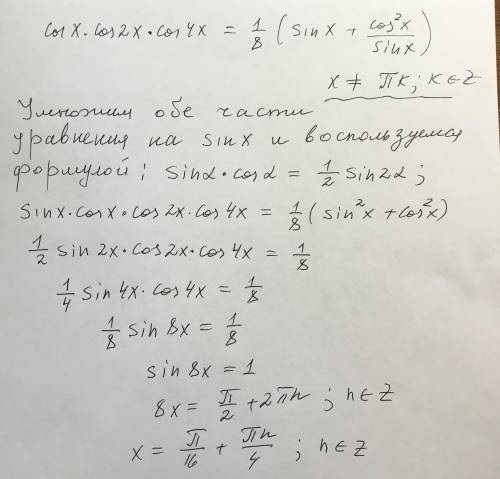 cosx·cos2x·cos4x = 1/8 (sinx + cos²x/sinx)
x ≠ πk; k∈Z
Умножим обе части
уравнения на sinx и воспользуемся
формулой: sinα·cosα = 1/2 sin2α;
sinx·cosx·cos2x·cos4x = 1/8 (sin²x + cos²x)
1/2 sin2x·cos2x·cos4x = 1/8
1/4 sin4x·cos4x = 1/8
1/8 sin8x = 1/8
sin8x = 1
8x = π/2 + 2πn ; n∈Z
x = π/16 + πn/4 ; n∈Z